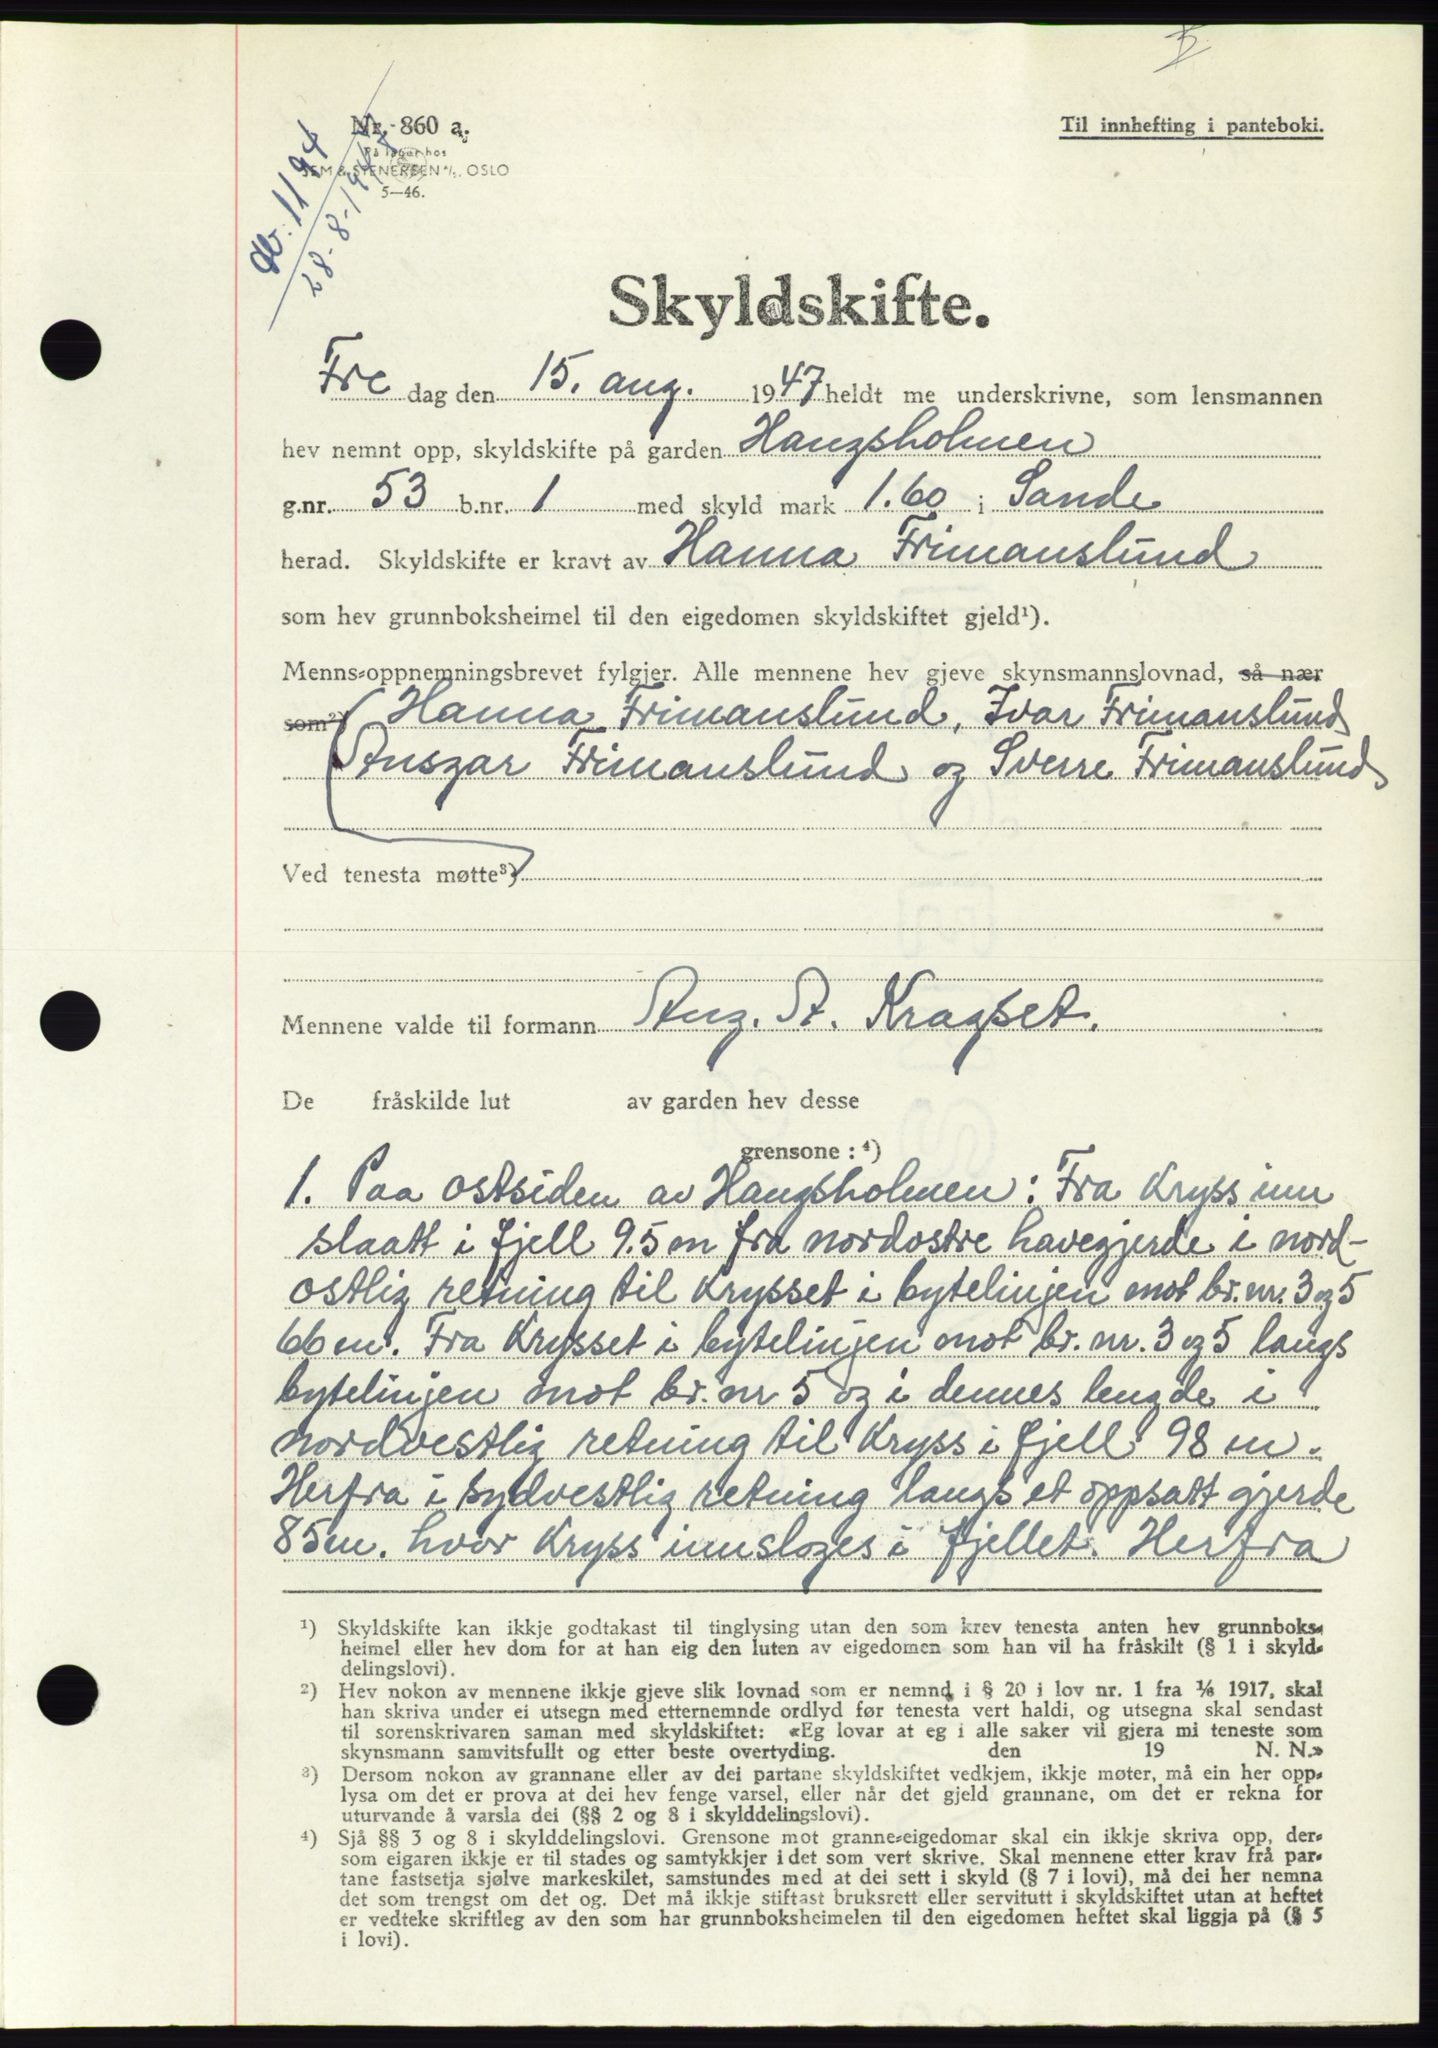 Nr. 860 a.
På lager hos
SEM & STENERSEN A/S, OSLO
5—46.
Til innhefting i panteboki.
1194
28-8-1947
Skyldskifte.
Fre dag den 15. aug. 1947 heldt me underskrivne, som lensmannen
hev nemnt opp, skyldskifte på garden Haugsholmen
g.nr. 53 b.nr. 1 med skyld mark 1.60 i Sande
herad. Skyldskifte er kravt av Hanna Frimanslund
som hev grunnboksheimel til den eigedomen skyldskiftet gjeld¹).
Menns-oppnemningsbrevet fylgjer. Alle mennene hev gjeve skynsmannslovnad, så nær
som²) Hanna Frimanslund, Ivar Frimanslund
Ansgar Frimanslund og Sverre Frimanslund
Ved tenesta møtte³)
Mennene valde til formann Aug. A. Kragset.
De fråskilde lut av garden hev desse
grensone : ⁴)
1. Paa ostsiden av Haugsholmen: Fra Kryss inn
slaatt i fjell 9.5 m fra nordostre havegjerde i nord-
ostlig retning til Krysset i bytelinjen mot br. nr. 3 og 5
66 m. Fra Krysset i bytelinjen mot br. nr. 3 og 5 langs
bytelinjen mot br. nr 5 og i dennes lengde i
nordvestlig retning til Kryss i fjell 98 m.
Herfra i sydvestlig retning langs et oppsatt gjerde
85 m. hvor Kryss innsloges i fjellet. Herfra
¹) Skyldskifte kan ikkje godtakast til tinglysing utan den som krev tenesta anten hev grunnboks-
heimel eller hev dom for at han eig den luten av eigedomen som han vil ha fråskilt (§ 1 i skyld-
delingslovi).
²) Hev nokon av mennene ikkje gjeve slik lovnad som er nemnd i § 20 i lov nr. 1 fra ⅙ 1917, skal
han skriva under ei utsegn med etternemnde ordlyd før tenesta vert haldi, og utsegna skal sendast
til sorenskrivaren saman med skyldskiftet: «Eg lovar at eg i alle saker vil gjera mi teneste som
skynsmann samvitsfullt og etter beste overtyding. den 19 N. N.»
³) Dersom nokon av grannane eller av dei partane skyldskiftet vedkjem, ikkje møter, må ein her opp-
lysa om det er prova at dei hev fenge varsel, eller når det gjeld grannane, om det er rekna for
uturvande å varsla dei (§§ 2 og 8 i skylddelingslovi).
⁴) Sjå §§ 3 og 8 i skylddelingslovi. Grensone mot granne-eigedomar skal ein ikkje skriva opp, der-
som eigaren ikkje er til stades og samtykkjer i det som vert skrive. Skal mennene etter krav frå par-
tane fastsetja sjølve markeskilet, samstundes med at dei sett i skyld (§ 7 i lovi), må dei her nemna
det som trengst om det og. Det må ikkje stiftast bruksrett eller servitutt i skyldskiftet utan at heftet
er vedteke skriftleg av den som har grunnboksheimelen til den eigedomen heftet skal liggja på (§ 5
i lovi).